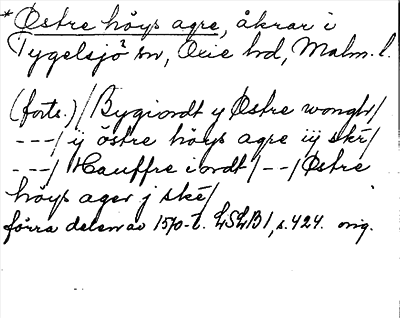 * Østre höys agre, åkrar i
Tygelsjö sn, Oxie hd, Malm. l.
(forts.) / Bygiordt y Østre wongh /
--- / ij östre höys agre iij skr /
--- / Hauffre iordt / -- / Østre
höys ager j ske /
förra delen av 1570-t. LSLB1, s. 424. orig.